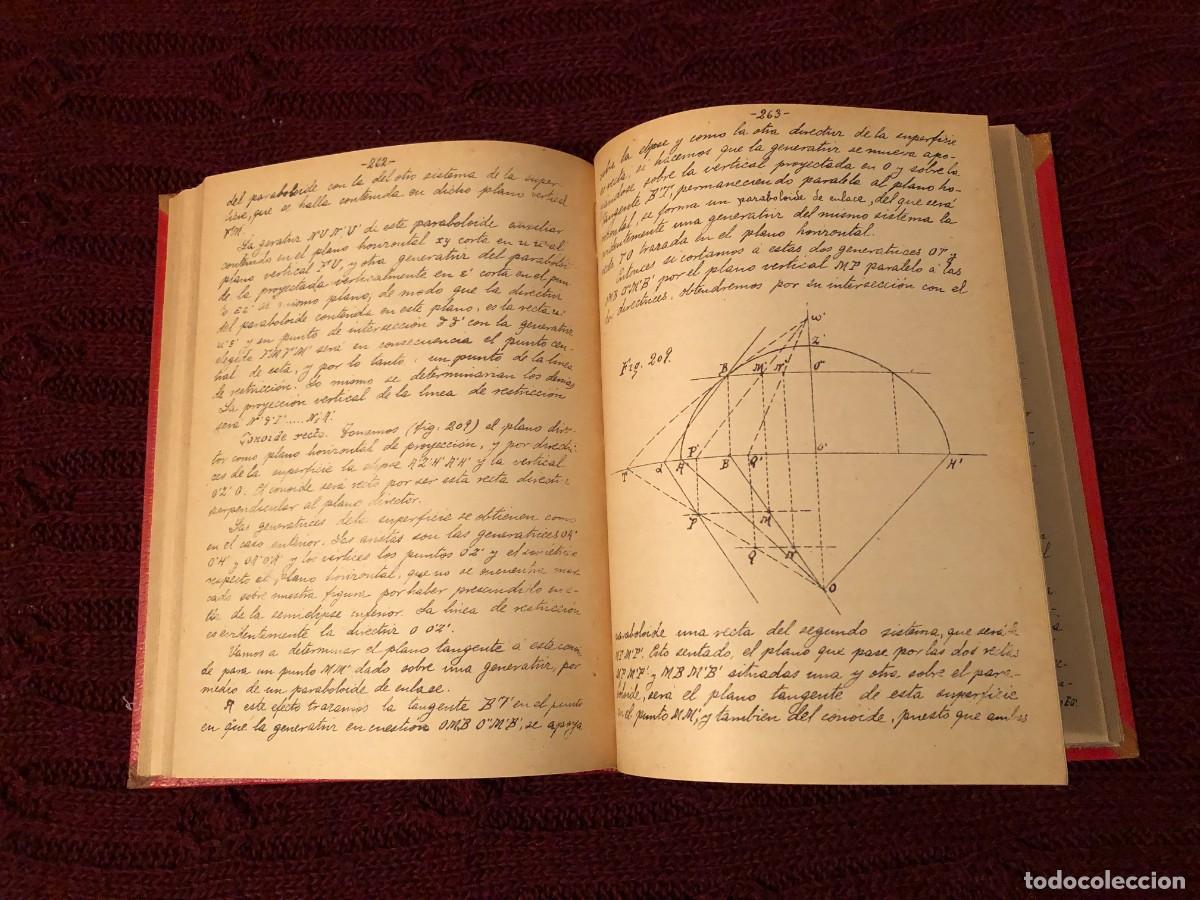 -262-
del paraboloide con la del otro sistema de la super-
ficie, que se halla contenida en dicho plano vertical
La generatriz de este paraboloide auxiliar
contenido en el plano horizontal xy corta en al
plano vertical y otra generatriz del paraboloi-
de la proyectada verticalmente en E' corta en el pun-
mismo plano, de modo que la directriz
del paraboloide contenida en este plano, es la recta
y su punto de intersección con la generatriz
será en consecuencia el punto cen-
tral de esta, y por lo tanto un punto de la linea
de restricción. Lo mismo se determinarian los demas
La proyección vertical de la linea de restricción
será
Conoide recto. Tomemos (fig. 209) el plano direc-
tor como plano horizontal de proyección, y por directri-
ces de la superficie la elipse y la vertical
O'2' O. El conoide será recto por ser esta recta directriz
perpendicular al plano director.
Las generatrices de la superficie se obtienen como
en el caso anterior. Las aristas son las generatrices
y los vertices los puntos O 2' y el simetrico
respecto al plano horizontal, que no se encuentra mar-
cado sobre nuestra figura por haber prescindido en es-
ta de la semielipse inferior. La linea de restricción
es evidentemente la directriz O O'2'.
Vamos a determinar el plano tangente á este conoi-
de para un punto M M' dado sobre una generatriz, por
medio de un paraboloide de enlase.
A este efecto trazamos la tangente B'T' en el punto
en que la generatriz en cuestion OMB O'M'B', se apoya
-263-
sobre la elipse y como la otra directriz de la superficie
es recta, si hacemos que la generatriz se mueva apo-
yandose sobre la vertical proyectada en O y sobre la
tangente B'T', permaneciendo paralela al plano ho-
rizontal, se forma un paraboloide de enlace, del que será
evidentemente una generatriz del mismo sistema la
recta TO trazada en el plano horizontal.
Entonces si cortamos á estas dos generatrices OT y
MB O'M'B' por el plano vertical MP paralelo á las
directrices, obtendremos por su intersección con el
Fig. 209.
ω'
2'
B'
M'
N'
O'
T
Q
A'
P'
B
Q'
O'
H'
P
M
Q
N
O
paraboloide una recta del segundo sistema, que será la
MP M'P'. Esto sentado, el plano que pase por las dos rectas
MP M'P' y MB M'B' situadas una y otra sobre el para-
boloide, será el plano tangente de esta superficie
en el punto MM', y tambien del conoide, puesto que ambas
todocoleccion